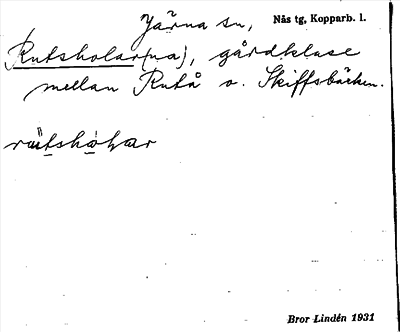 Järna sn, Nås tg, Kopparb. l.
Rutsholar(na), gårdklase
mellan Rutå o. Skiffsbäcken.
Bror Lindén 1931